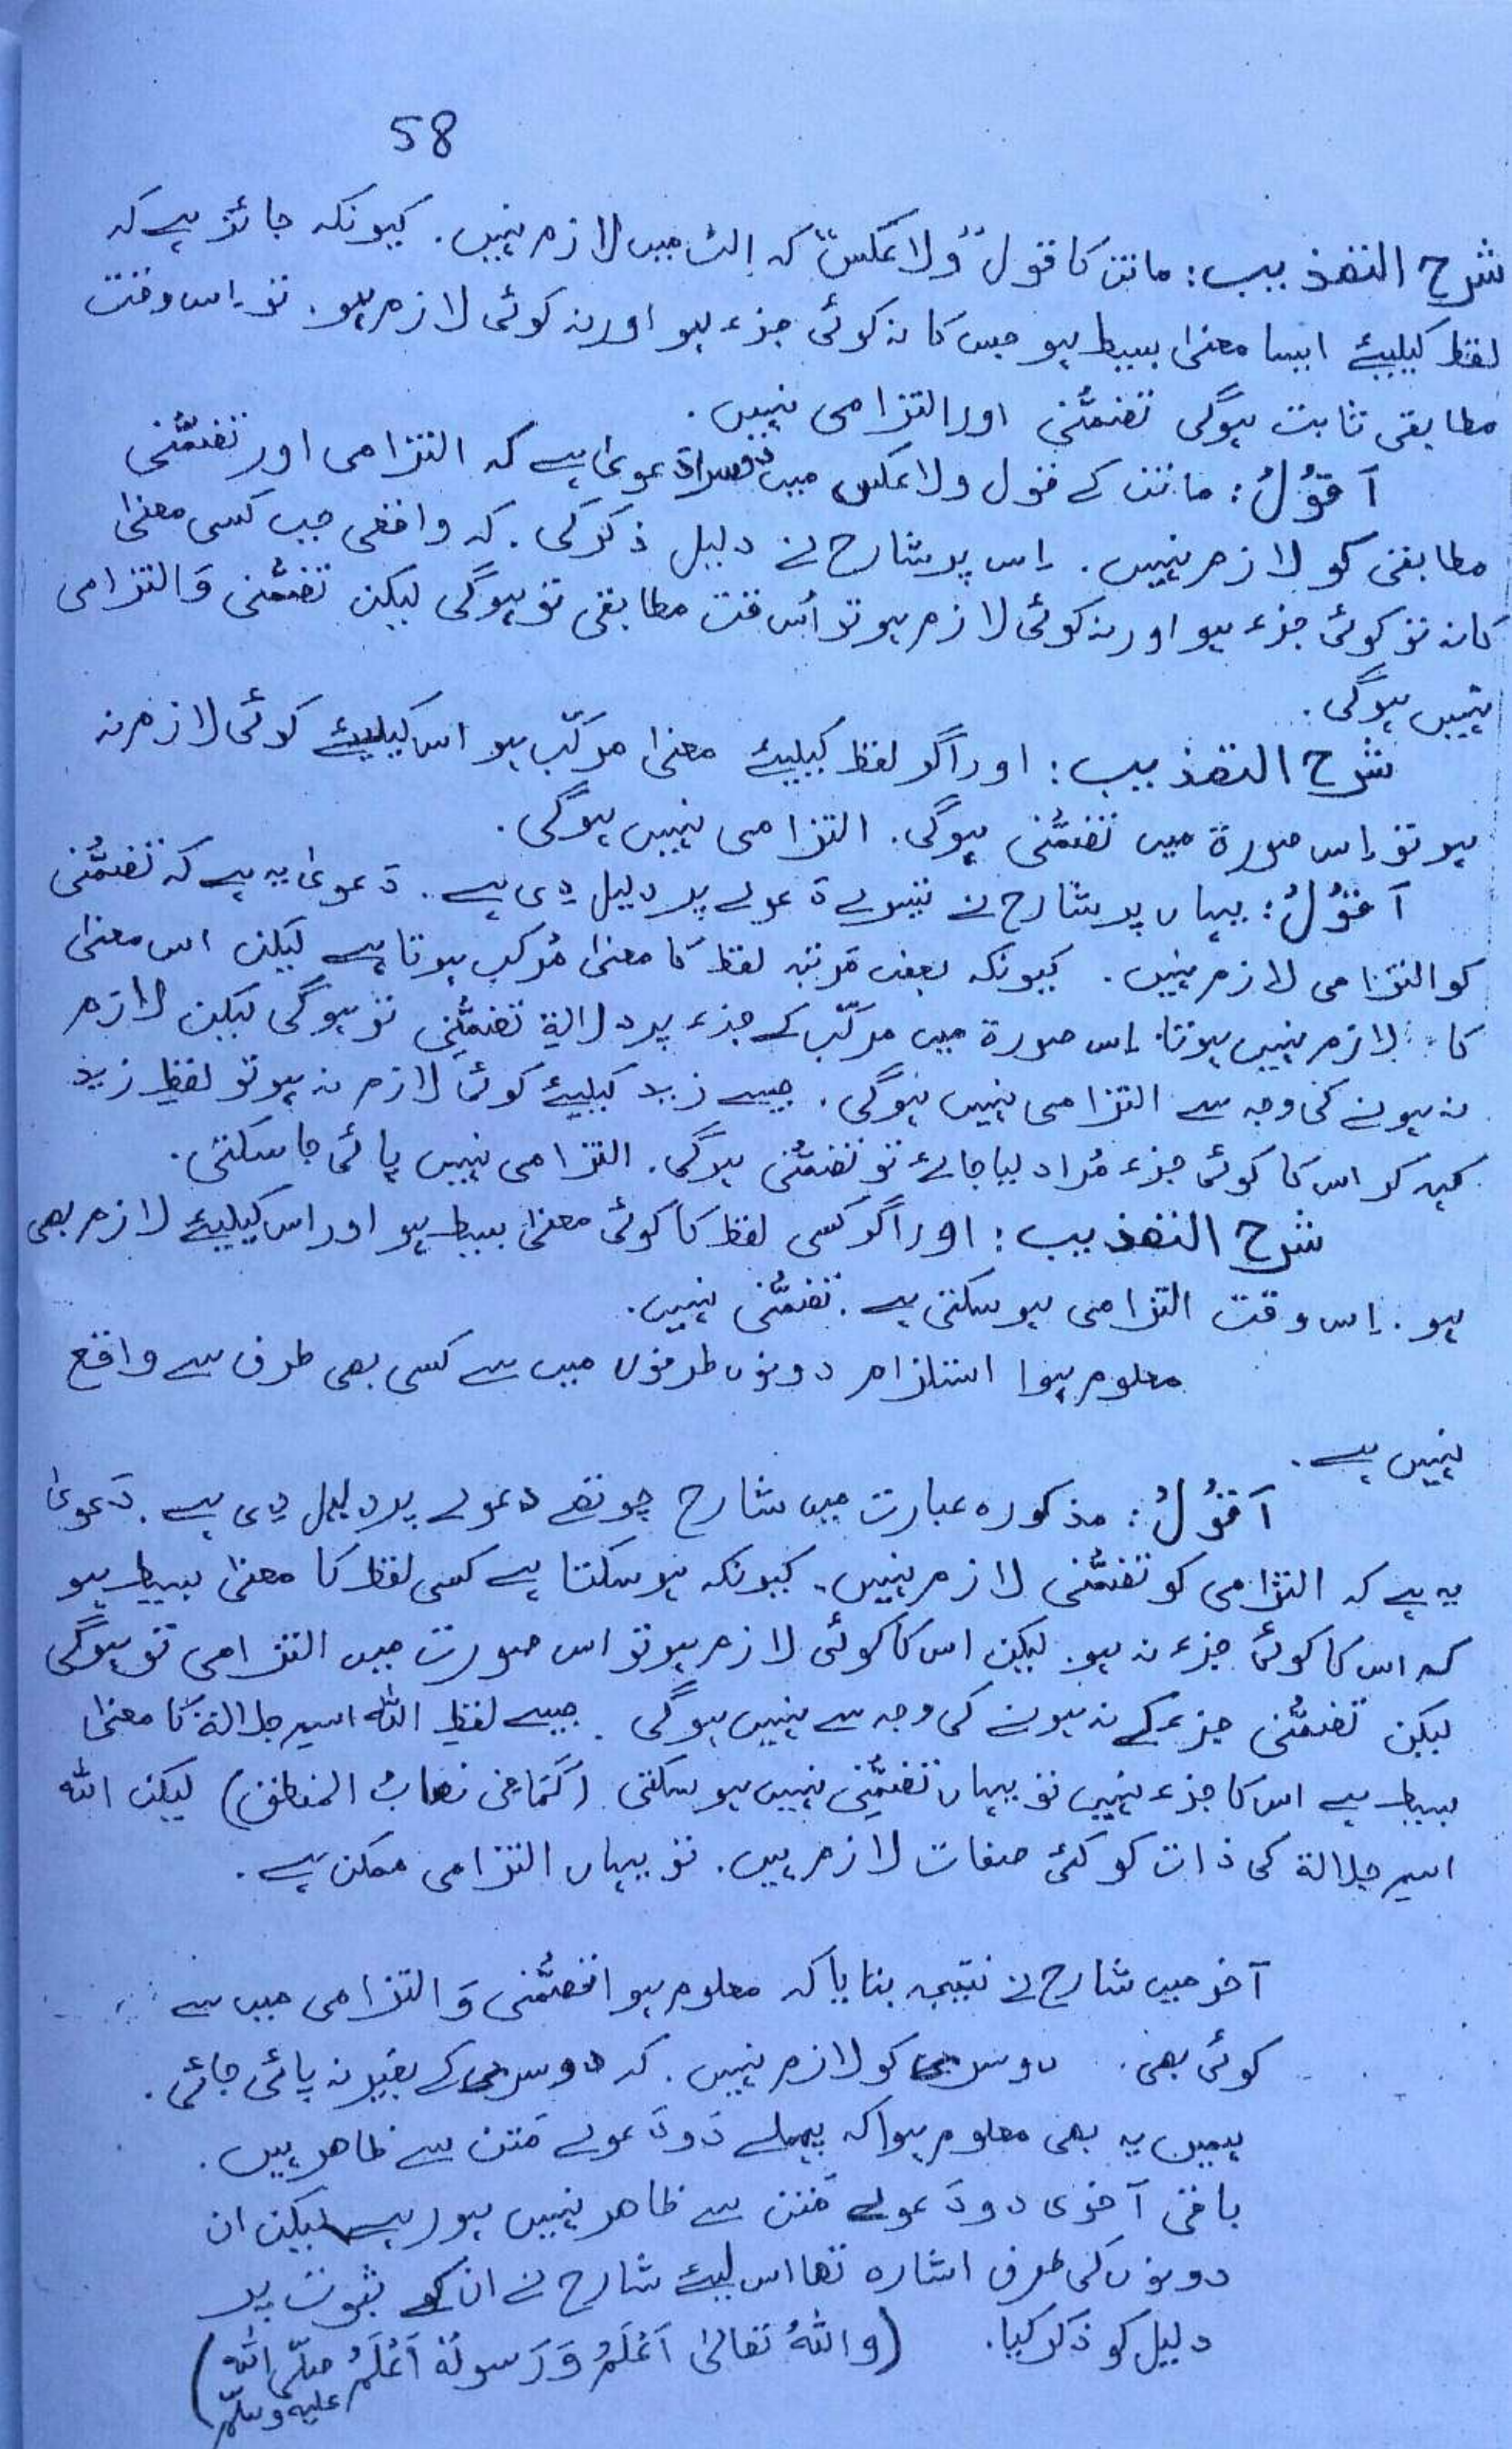 58
شرح التھذیب: ماتن کا قول "ولا عکس" کہ الٹ میں لازم نہیں. کیونکہ جائز ہے کہ
لفظ کیلیئے ایسا معنیٰ بسیط ہو جس کا نہ کوئی جزء ہو اور نہ کوئی لازم ہو. تو اِس وقت
مطابقی ثابت ہوگی تضمُّنی اور التزامی نہیں.
اَقُوْلُ: ماتن کے قول ولا عکس میں دوسرا دَعویٰ ہے کہ التزامی اور تضمُّنی
مطابقی کو لازم نہیں. اِس پر شارح نے دلیل ذکر کی. کہ واقعی جب کسی معنیٰ
کا نہ تو کوئی جزء ہو اور نہ کوئی لازم ہو تو اُس وقت مطابقی تو ہوگی لیکن تضمُّنی وَ التزامی
نہیں ہوگی.
شرح التھذیب: اور اگر لفظ کیلیئے معنیٰ مرکّب ہو اس کیلیئے کوئی لازم نہ
ہو تو اِس صورۃ میں تضمُّنی ہوگی. التزامی نہیں ہوگی.
اَقُوْلُ: یہاں پر شارح نے تیسرے دَعوے پر دلیل دی ہے. دَعویٰ یہ ہے کہ تضمُّنی
کو التزامی لازم نہیں. کیونکہ بعض مَرتبہ لفظ کا معنیٰ مُرکب ہوتا ہے لیکن اس معنیٰ
کا لازم نہیں ہوتا. اِس صورۃ میں مرکّب کے جزء پر دلالۃ تضمُّنِی تو ہوگی لیکن لازم
نہ ہونے کی وجہ سے التزامی نہیں ہوگی. جیسے زید کیلیئے کوئی لازم نہ ہو تو لفظِ زید
کہہ کر اس کا کوئی جزء مُراد لیا جائے تو تضمُّنی ہوگی. التزامی نہیں پائی جا سکتی.
شرح التھذیب: اور اگر کسی لفظ کا کوئی معنیٰ بسیط ہو اور اس کیلیئے لازم بھی
ہو. اِس وقت التزامی ہو سکتی ہے. تضمُّنی نہیں.
معلوم ہوا استلزام دونوں طرفوں میں سے کسی بھی طرف سے واقع
نہیں ہے.
اَقُوْلُ: مذکورہ عبارت میں شارح چوتھے دعوے پر دلیل دی ہے. دَعویٰ
یہ ہے کہ التزامی کو تضمُّنی لازم نہیں. کیونکہ ہو سکتا ہے کسی لفظ کا معنیٰ بسیط ہو
کہ اس کا کوئی جزء نہ ہو. لیکن اس کا کوئی لازم ہو تو اس صورت میں التزامی تو ہوگی
لیکن تضمُّنی جزء کے نہ ہونے کی وجہ سے نہیں ہوگی. جیسے لفظِ اللہ اسمِ جلالۃ کا معنیٰ
بسیط ہے اس کا جزء نہیں تو یہاں تضمُّنِی نہیں ہو سکتی (کَمَا فی نصابُ المنطق) لیکن اللہ
اسمِ جلالۃ کی ذات کو کئی صفات لازم ہیں. تو یہاں التزامی ممکن ہے.
آخر میں شارح نے نتیجہ بتایا کہ معلوم ہوا تضمُّنی وَ التزامی میں سے
کوئی بھی دوسری کو لازم نہیں. کہ دوسری کے بغیر نہ پائی جائی.
ہمیں یہ بھی معلوم ہوا کہ پہلے دَو دَعوے مَتن سے ظاھر ہیں.
باقی آخری دو دَعوے مَتن سے ظاھر نہیں ہو رہے لیکن ان
دونوں کی طرف اشارہ تھا اس لیئے شارح نے ان کے ثبوت پر
دلیل کو ذکر کیا. (و اللہُ تعالیٰ اَعْلَمُ وَ رَسولُہٗ اَعْلَمُ صلّی اللہ
علیہ وسلّم)